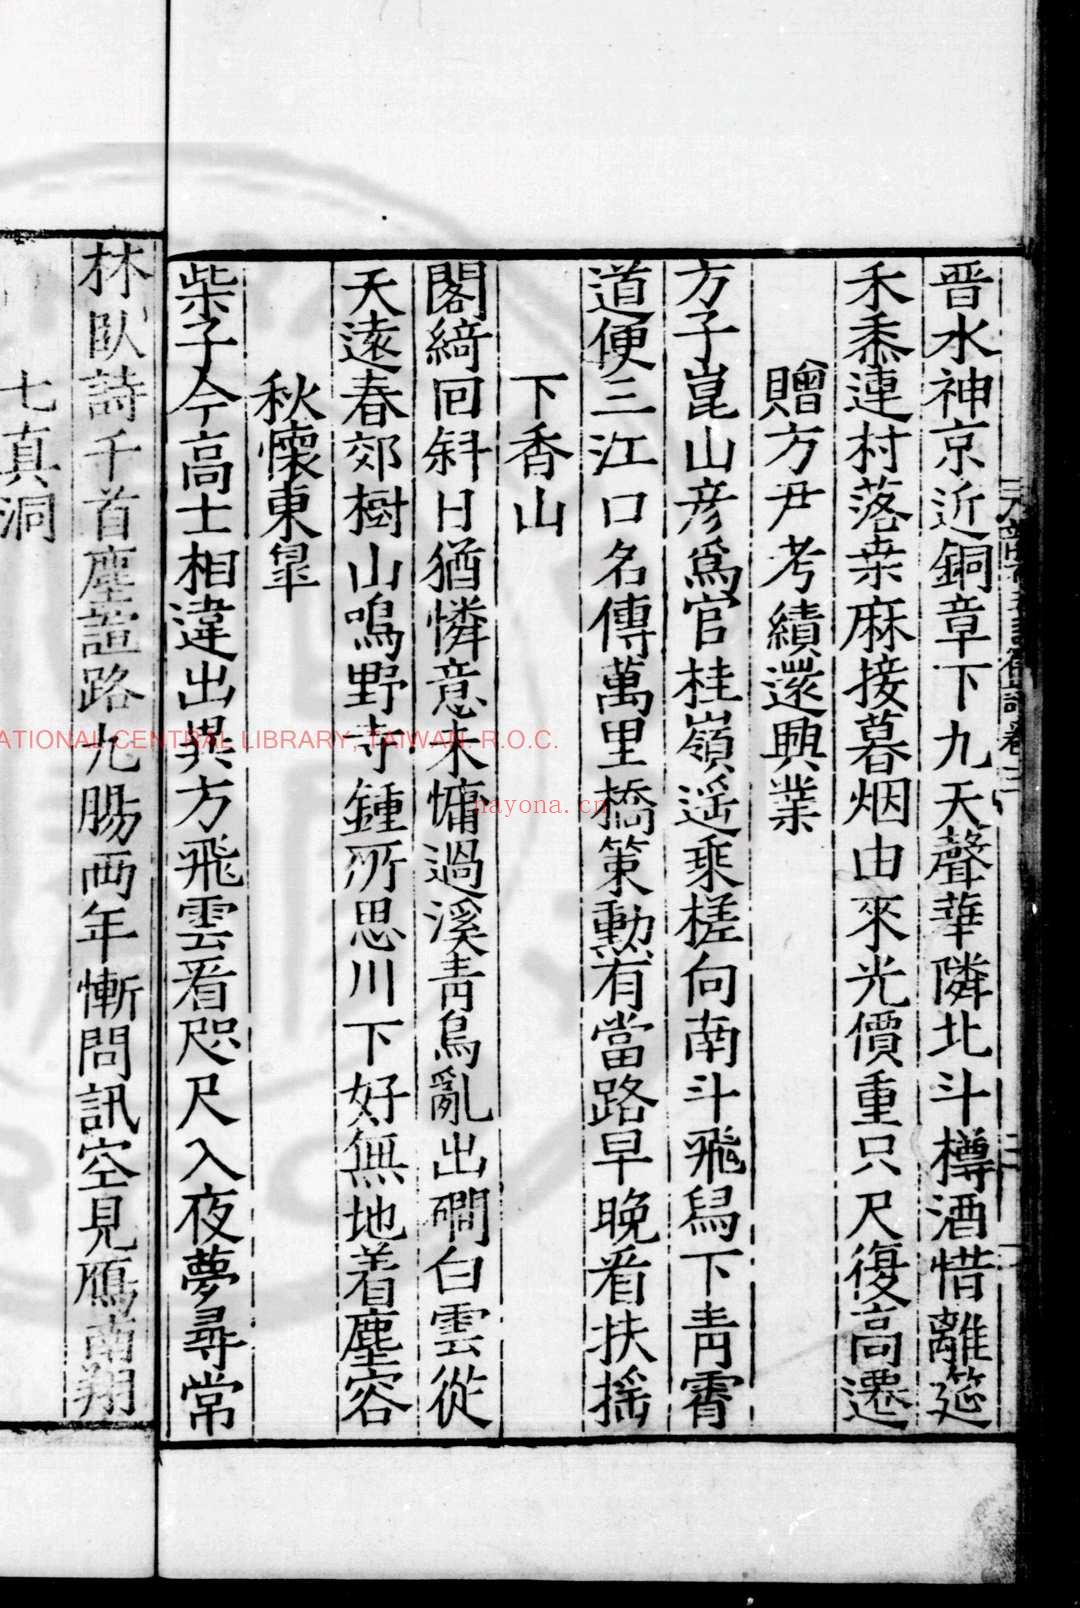 晋水神京近銅章下九天聲華隣北斗樽酒惜離筵
禾黍連村落桒麻接暮烟由來光價重只尺復高遷
贈方尹考績還興業
方子崑山彦爲官桂嶺遥乘槎向南斗飛舄下青霄
道便三江口名傳萬里橋策勲有當路早晚看扶揺
下香山
閣綺回斜日猶憐意未慵過溪青鳥亂出磵白雲從
天遠春郊樹山鳴野寺鍾所思川下好無地着塵容
秋懷東皐
柴子今高士相違出異方飛雲看咫尺入夜夢尋常
林臥詩千首塵諠路九腸两年慚問訊空見鴈南翔
七真洞
NATIONAL CENTRAL LIBRARY, TAIWAN. R.O.C.
nayona.cn